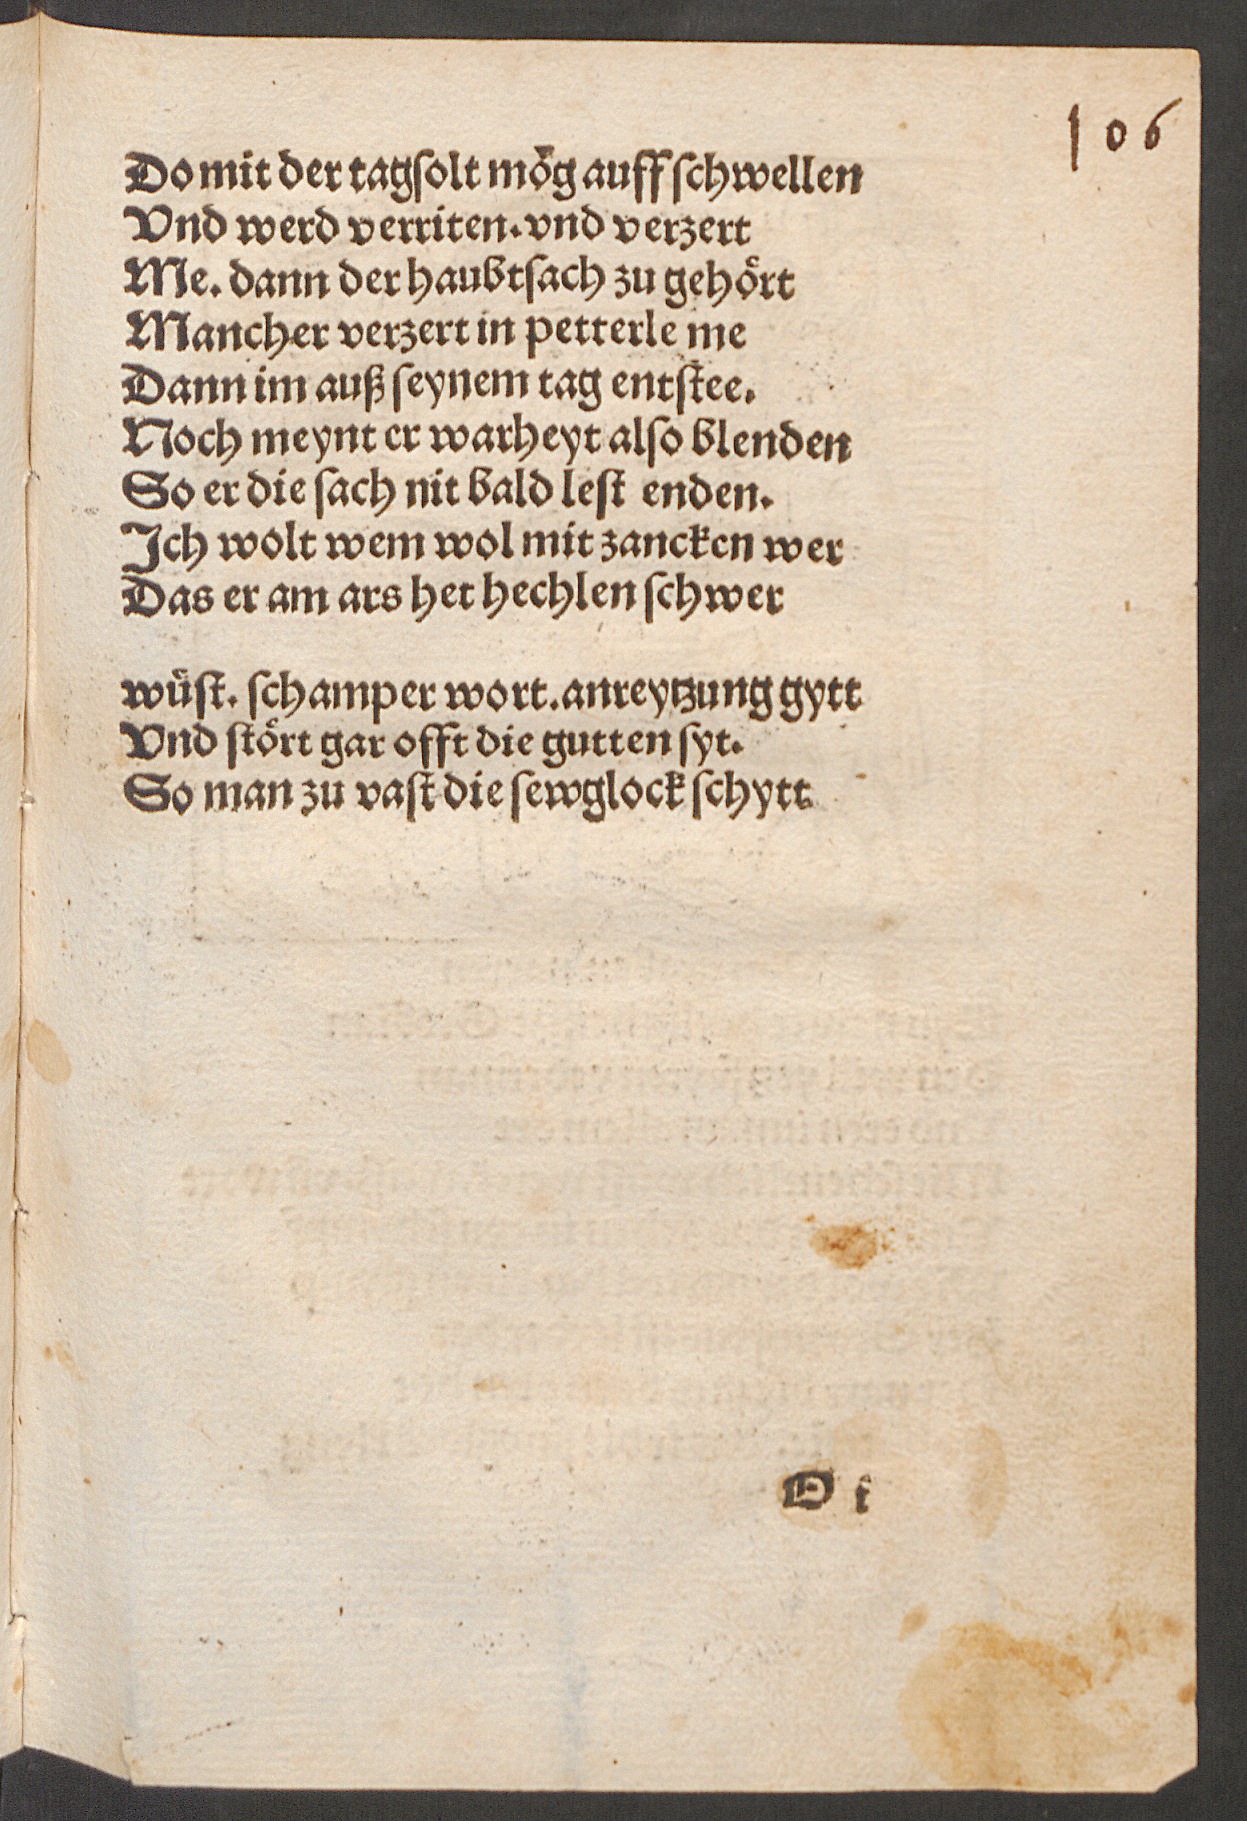 106
Do mit der tagſolt moͤg auff ſchwellen
Vnd werd verriten. vnd verzert
Me. dann der haubtſach zu gehoͤrt
Mancher verzert in petterle me
Dann im auß ſeynem tag entſtee.
Noch meynt er warheyt alſo blenden
So er die ſach nit bald leſt enden.
Ich wolt wem wol mit zancken wer
Das er am ars het hechlen ſchwer
wuͤſt. ſchamper wort. anreytzung gytt
Vnd ſtoͤrt gar offt die gutten ſyt.
So man zu vaſt die ſewglock ſchytt